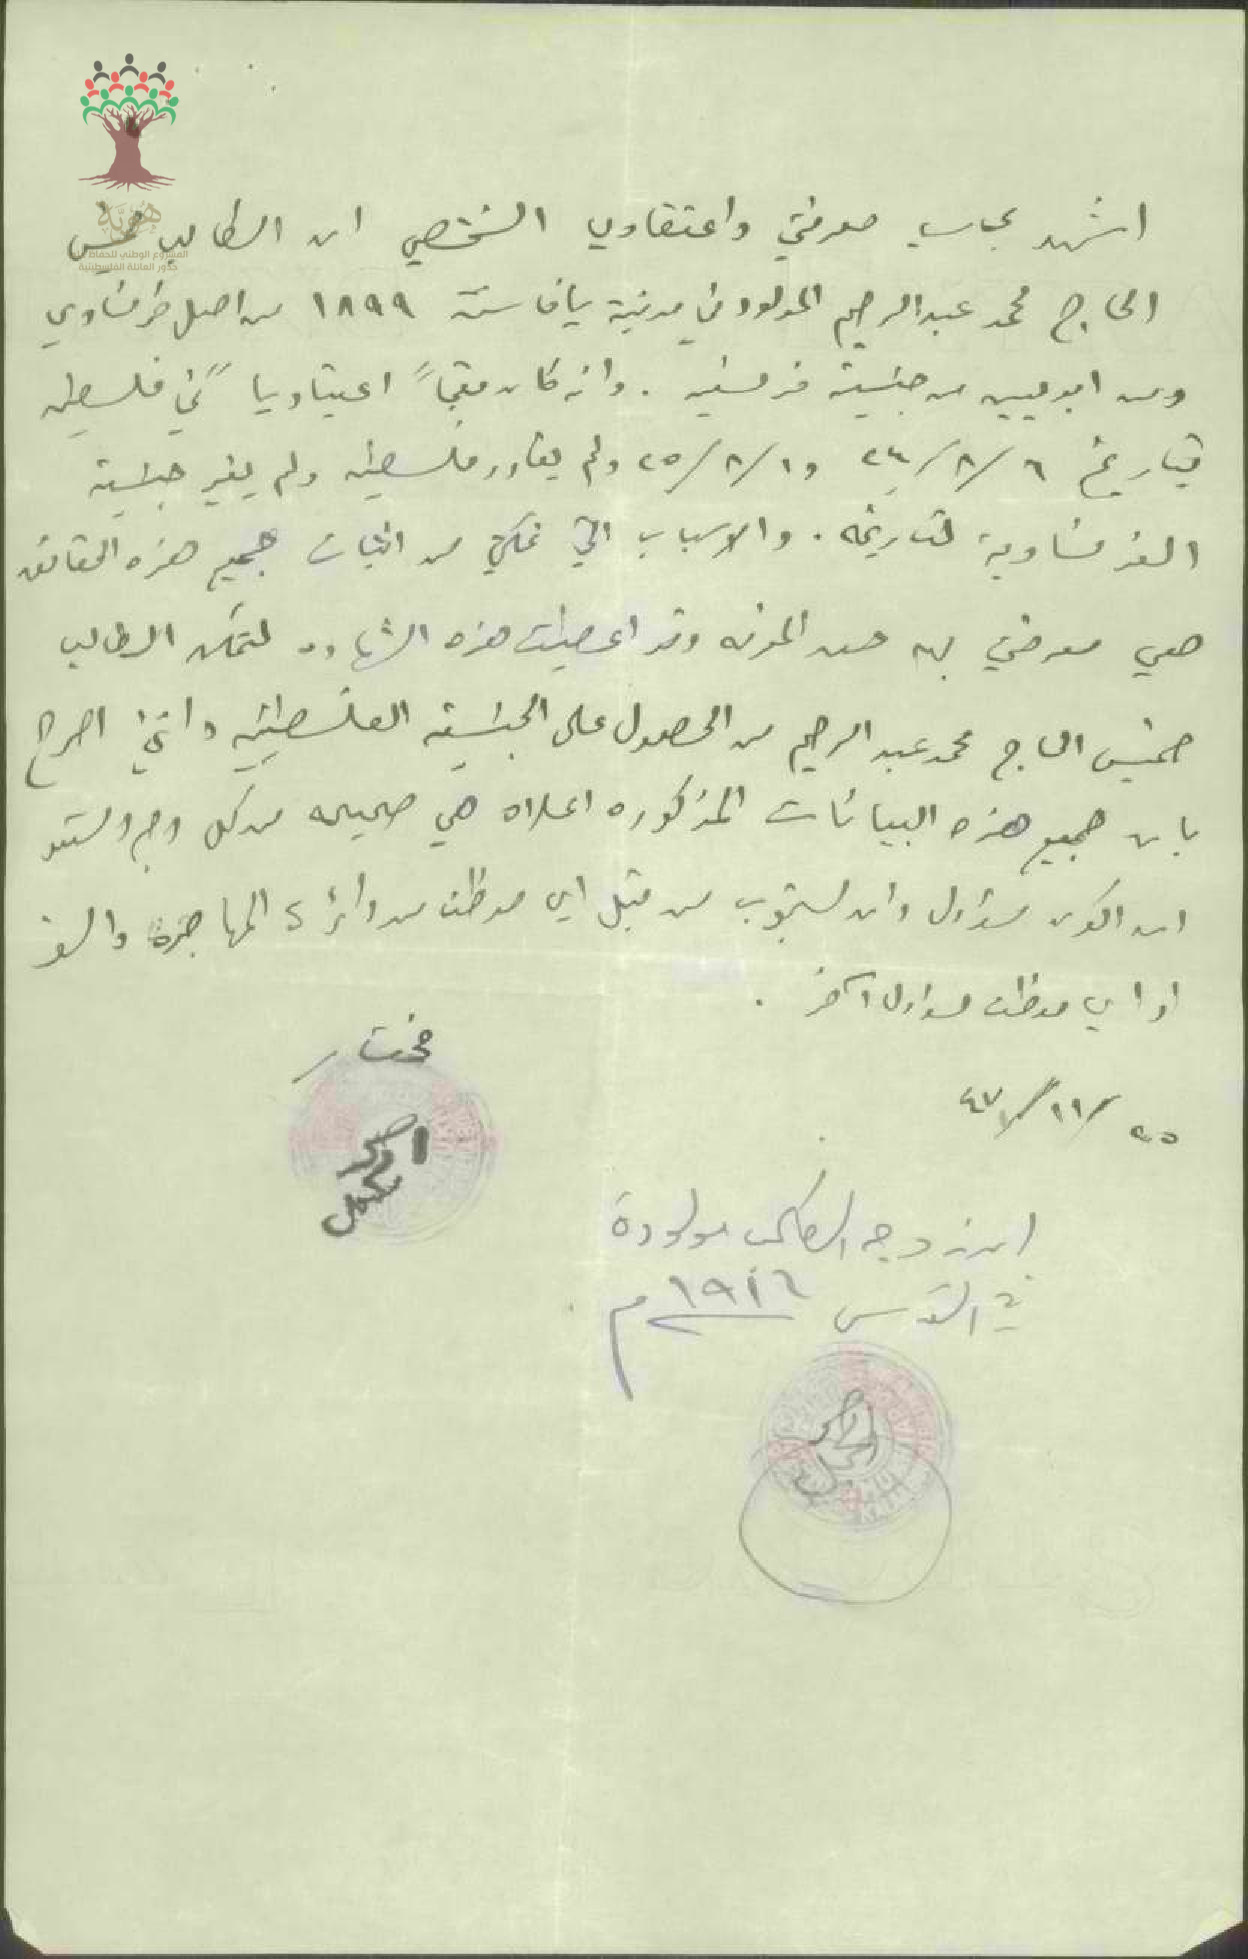 هُوِيَّة
المشروع الوطني للحفاظ على
جذور العائلة الفلسطينية
اشهد بحاسب معرفتي واعتقادي الشخصي ان الطالب خميس
الحاج محمد عبد الرحيم المولود في مدينة يافا سنة ١٨٩٩ من اصل فرنساوي
ومن ابويين من جنسية فرنسيه . وانه كان مقيماً اعتياديا في فلسطين
بتاريخ ٦ /٨/ ٢٤ و ١ /٨/ ٢٥ ولم يغادر فلسطين ولم يغير جنسيته
الفرنساوية لتاريخه . والاسباب التي تمكني من اثبات جميع هذه الحقائق
هي معرفتي به حق المعرفه وقد اعطيت هذه الشهاده لتمكن الطالب
خميس الحاج محمد عبد الرحيم من الحصول على الجنسية الفلسطينيه وانني اصرح
بان جميع هذه البيانات المذكوره اعلاه هي صحيحه من كل وجه ومستعد
ان اكون مسؤول وان استجوب من قبل اي موظف من دائرة المهاجرة والسفر
او اي موظف مسؤول آخر .
مختار
٢٥ /١١/ ٤٧
ان زوجه الطالب مولودة
في القدس ١٩١٦ م